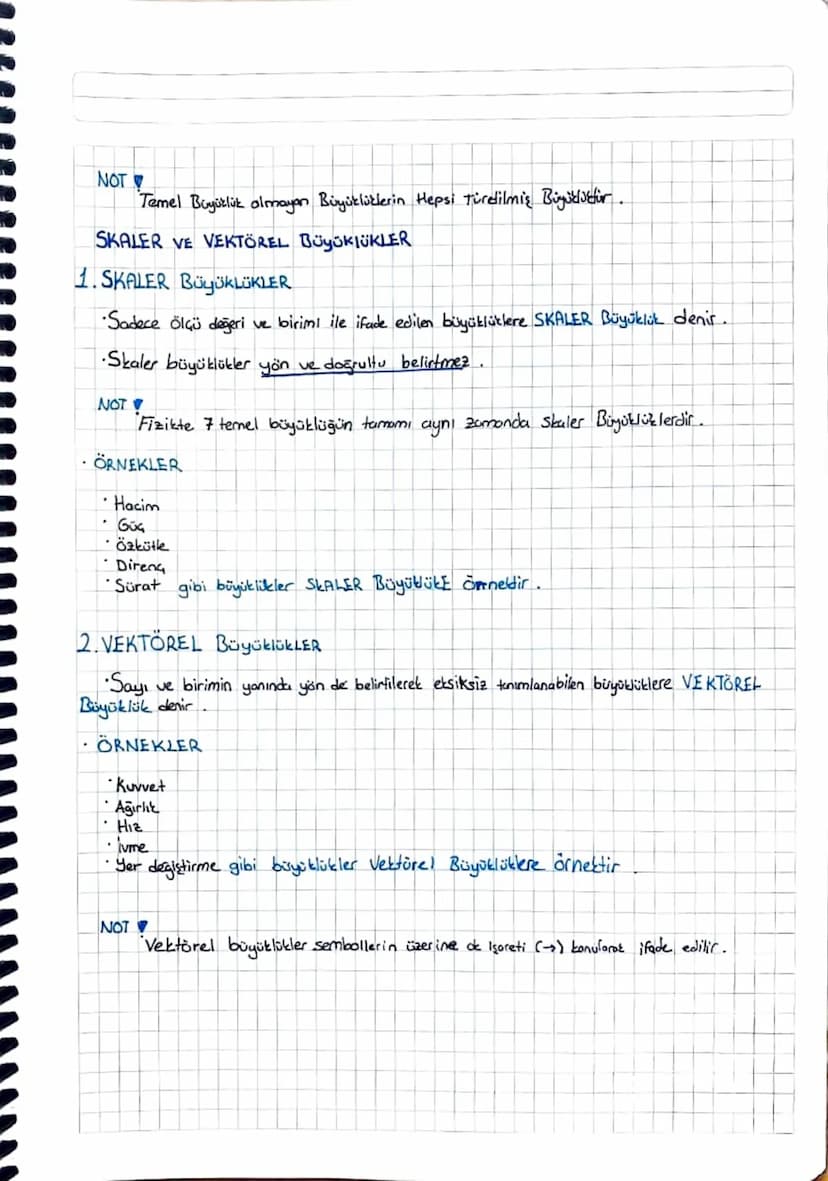 NOT
Temel Büyüklük olmayan Büyüklüklerin Hepsi Türdilmiş Büyüklüktür.
SKALER VE VEKTÖREL BÜYÜKLÜKLER
1. SKALER BÜYÜKLÜKLER
·Sadece ölçü değeri ve birimi ile ifade edilen büyüklüklere SKALER Büyüklük denir.
·Skaler büyüklükler yön ve doğrultu belirtmez.
NOT
Fizikte 7 temel büyüklüğün tamamı aynı zamanda skaler Büyüklüklerdir.
· ÖRNEKLER
· Hacim
· Güç
· Özkütle
· Direnç
· Sürat gibi büyüklükler SKALER BÜYÜKLÜKE Örnektir.
2. VEKTÖREL BÜYÜKLÜKLER
·Sayı ve birimin yanında yön de belirtilerek eksiksiz tanımlanabilen büyüklüklere VEKTÖREL
Büyüklük denir.
· ÖRNEKLER
· Kuvvet
· Ağırlık
· Hız
· İvme
· Yer değiştirme gibi büyüklükler Vektörel Büyüklüklere örnektir.
NOT
Vektörel büyüklükler sembollerin üzerine ok işareti (→) konularak ifade edilir.